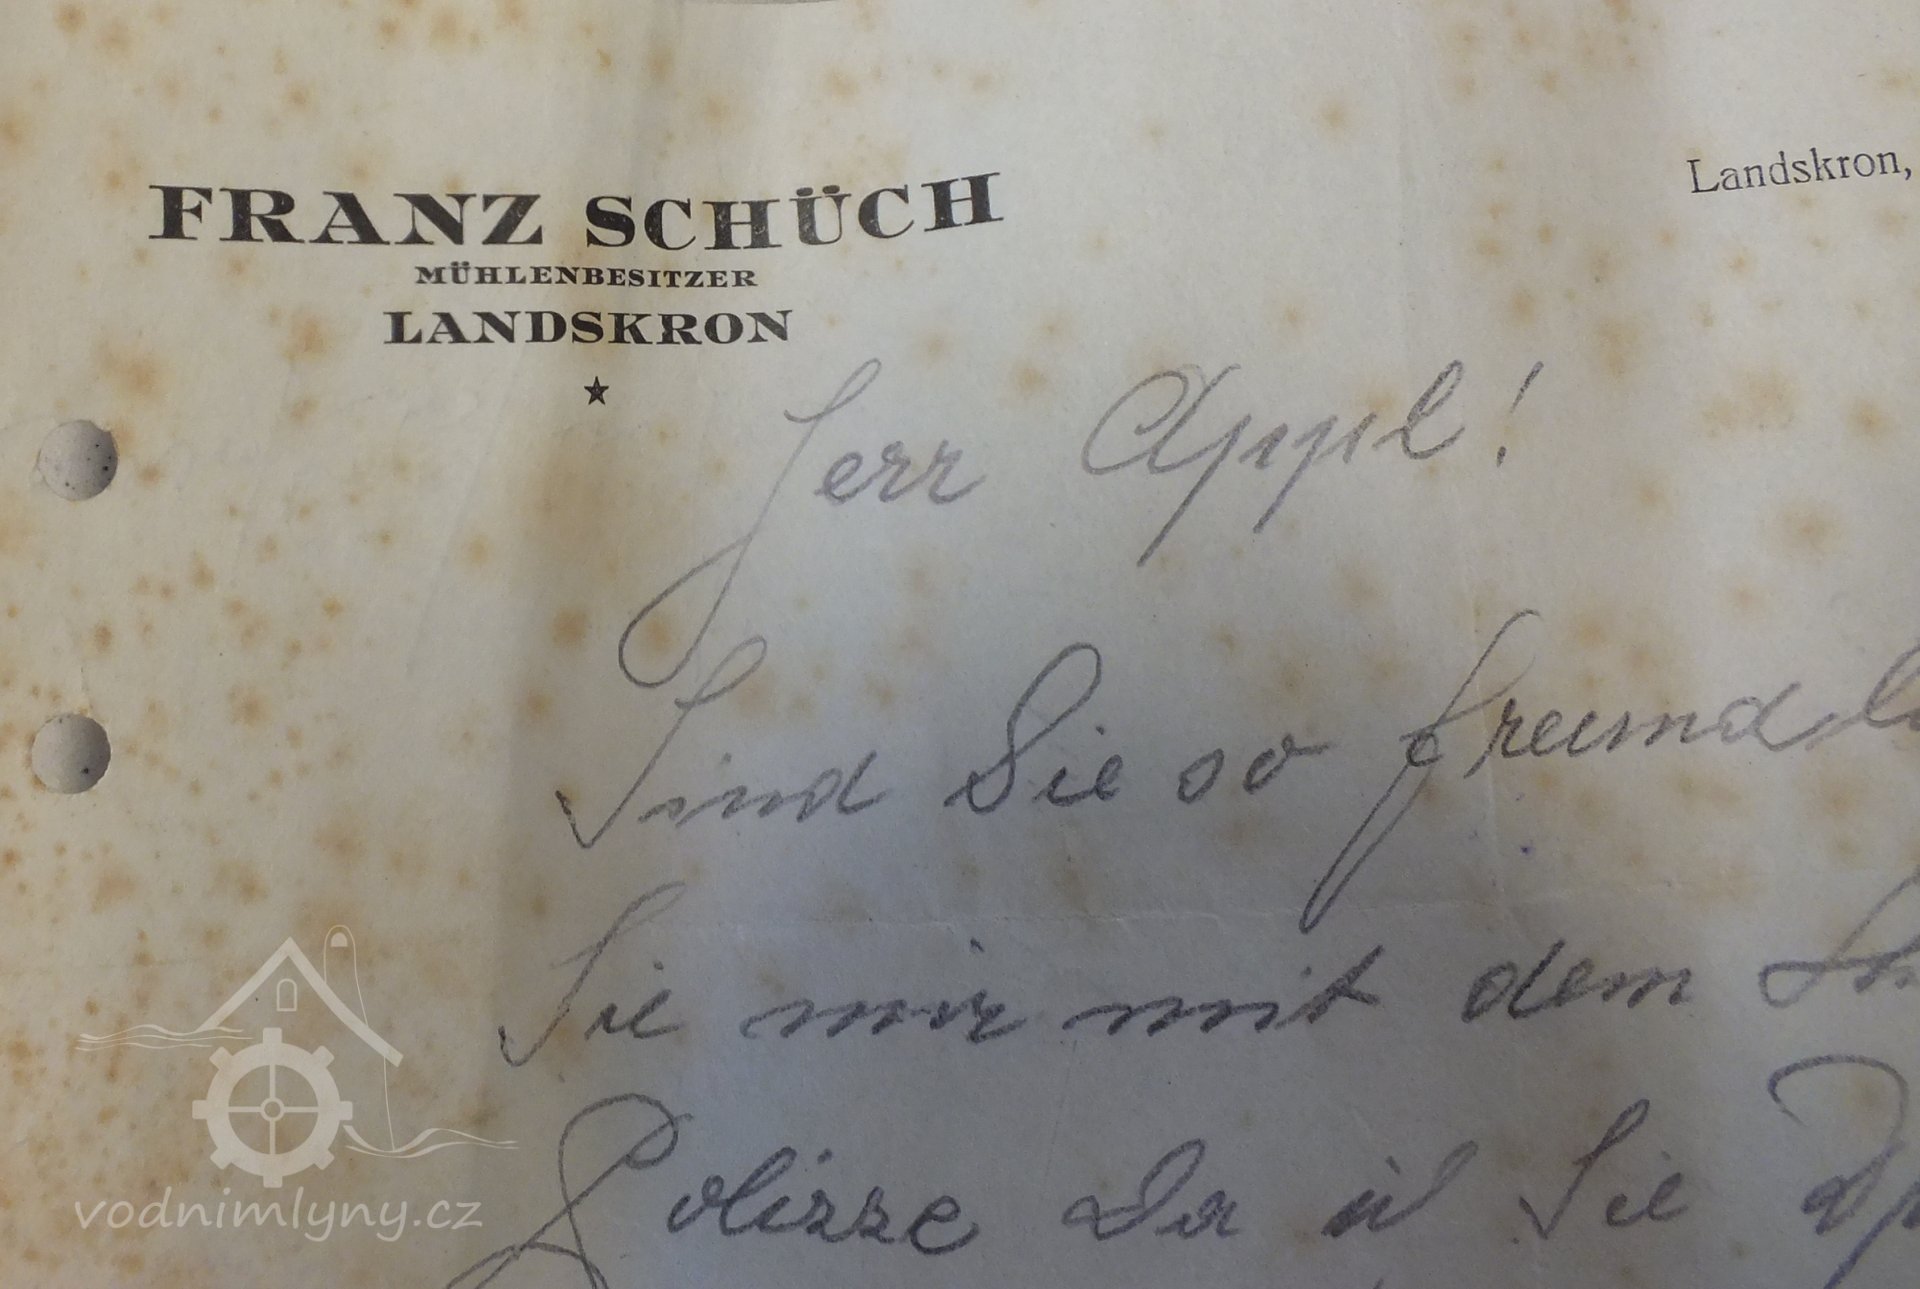 FRANZ SCHÜCH
MÜHLENBESITZER
LANDSKRON
Landskron,
Herr Appl!
Sind Sie so freundl
Sie mir mit dem
Polizze Da ich Sie
vodnimlyny.cz